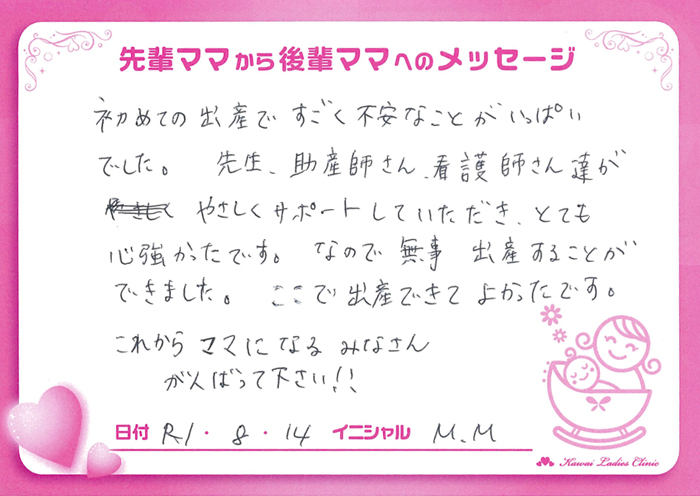 先輩ママから後輩ママへのメッセージ
初めての出産ですごく不安なことがいっぱい
でした。 先生、助産師さん、看護師さん達が
やさしくサポートしていただき、とても
心強かったです。 なので無事 出産することが
できました。 ここで出産できてよかったです。
これからママになるみなさん
がんばって下さい!!
日付 R1・8・14 イニシャル M.M
Kawai Ladies Clinic